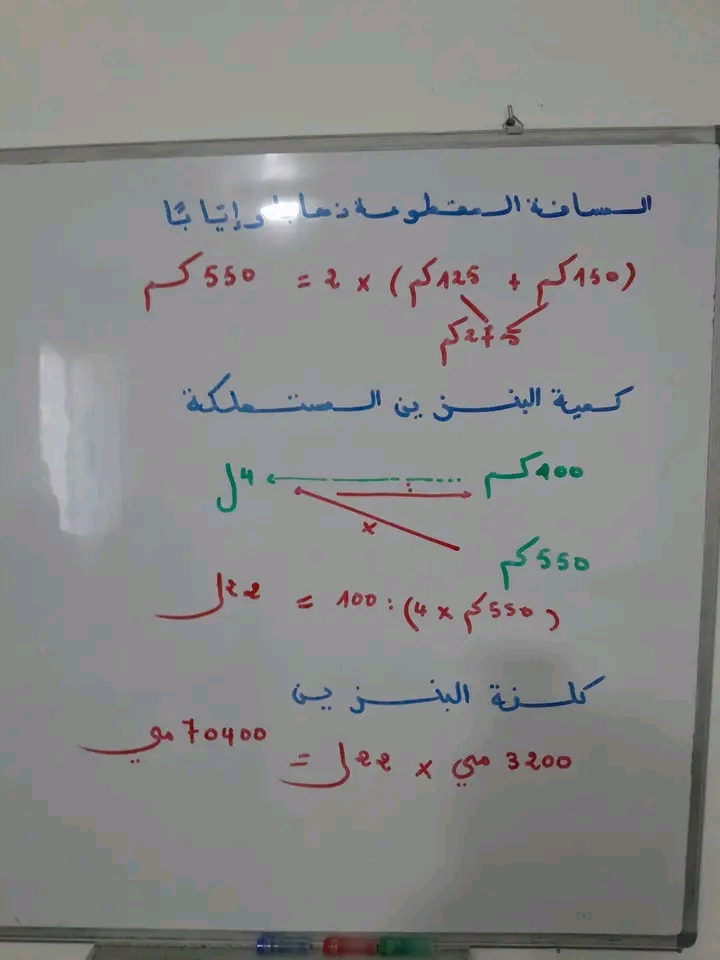 المسافة المقطوعة ذهابا وإيّابًا
(150كم + 125كم) × 2 = 550كم
275كم
كمية البنزين المستهلكة
100كم 4ل
:
×
550كم
(550كم × 4) : 100 = 22ل
كلفة البنزين
3200 مي × 22ل = 70400 مي